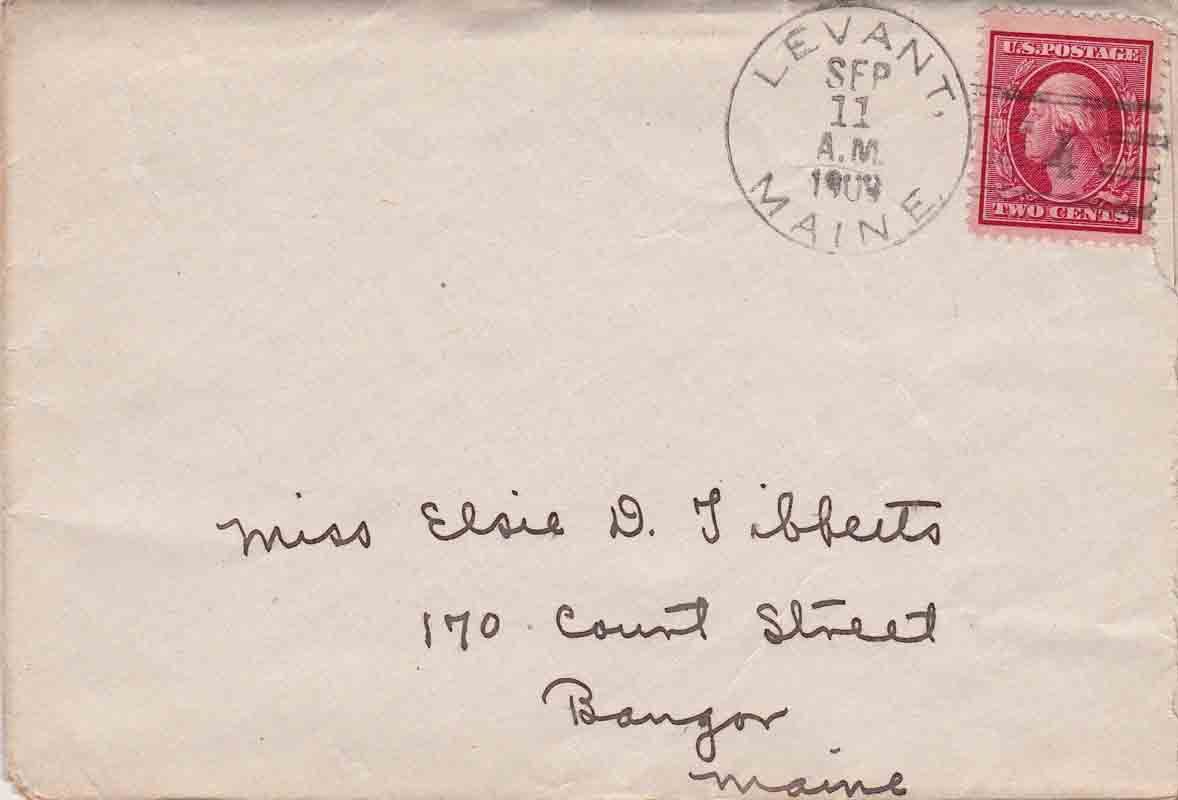 LEVANT,
SEP
11
A.M.
1909
MAINE.
U.S. POSTAGE
4
TWO CENTS
Miss Elsie D. Tibbetts
170 Court Street
Bangor
Maine